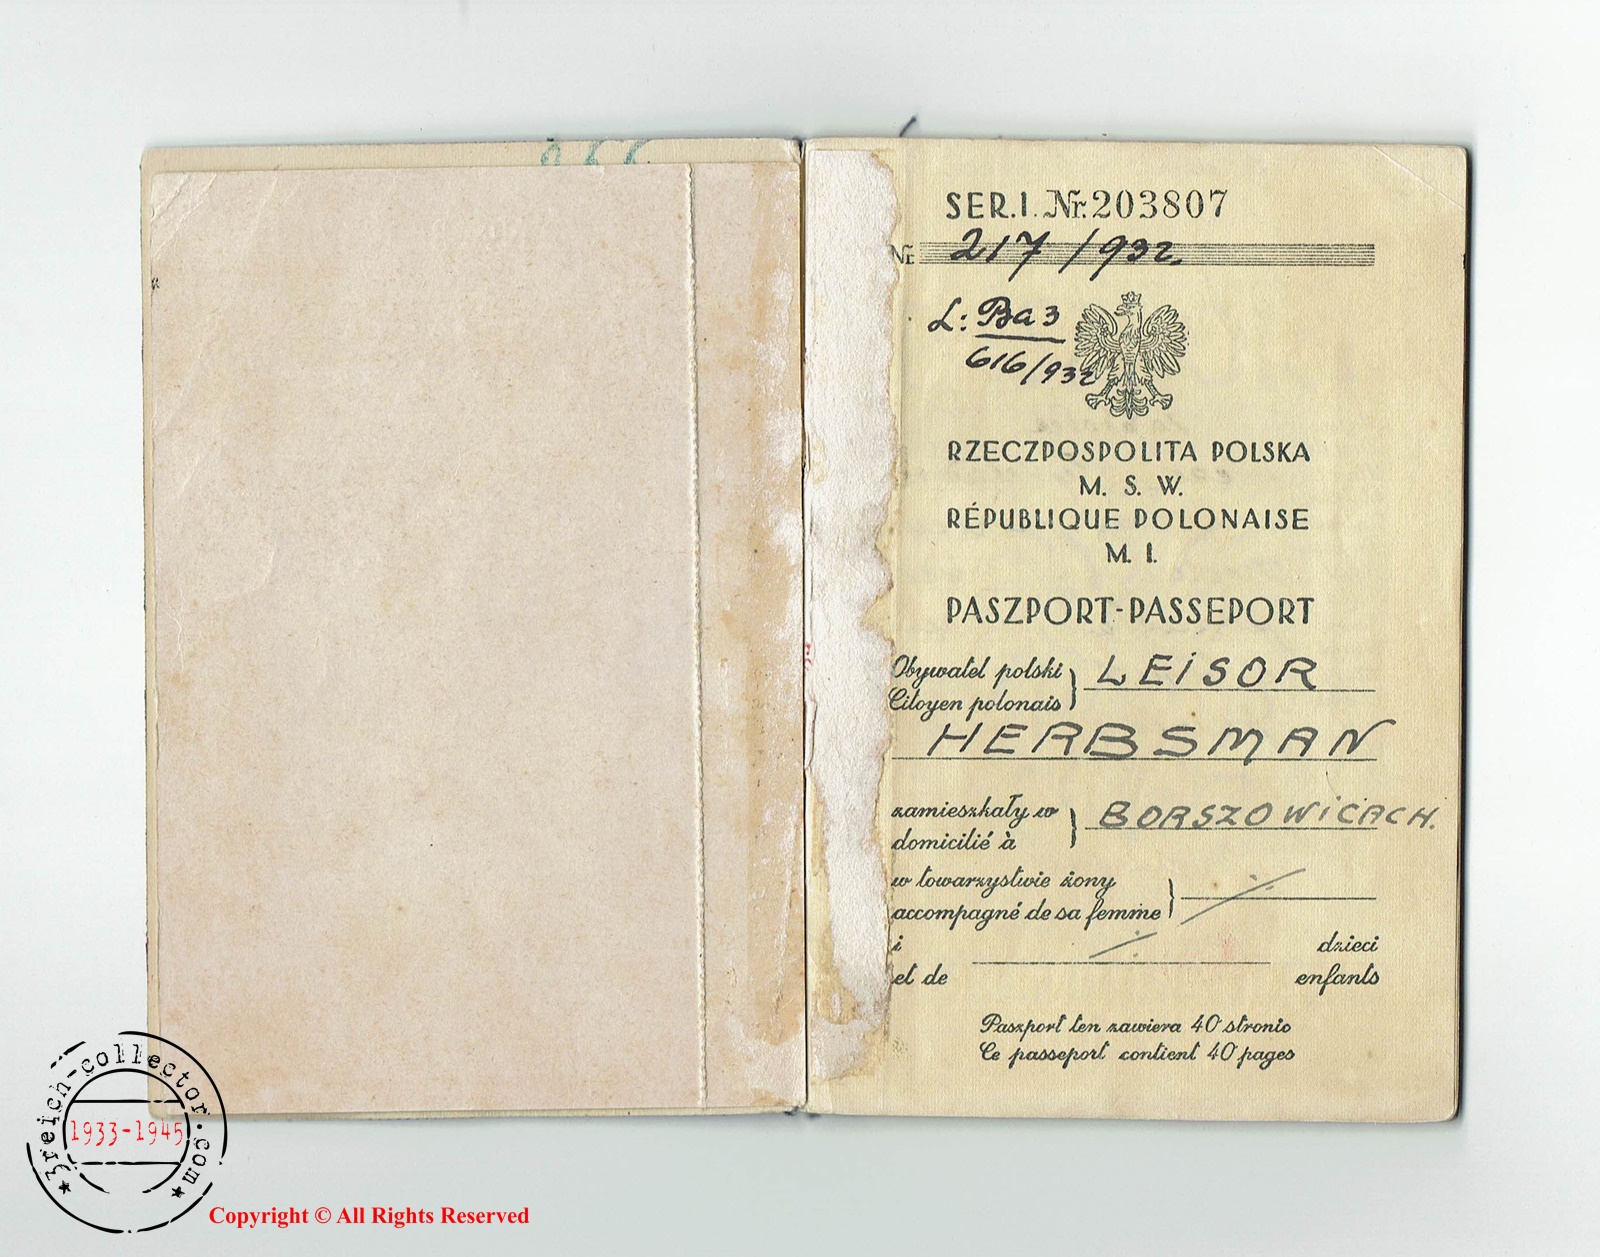 SER.I. Nr. 203807
Nr. 217/932.
L: Ba 3
616/932
RZECZPOSPOLITA POLSKA
M. S. W.
RÉPUBLIQUE POLONAISE
M. I.
PASZPORT-PASSEPORT
Obywatel polski } LEISOR
Citoyen polonais
HERBSMAN
zamieszkały w } BORSZOWICACH.
domicilié à
w towarzystwie żony
accompagné de sa femme } ·/·
i ·/· dzieci
et de enfants
Paszport ten zawiera 40 stronic
Ce passeport contient 40 pages
*3reich-collector.com*
1933-1945
Copyright © All Rights Reserved